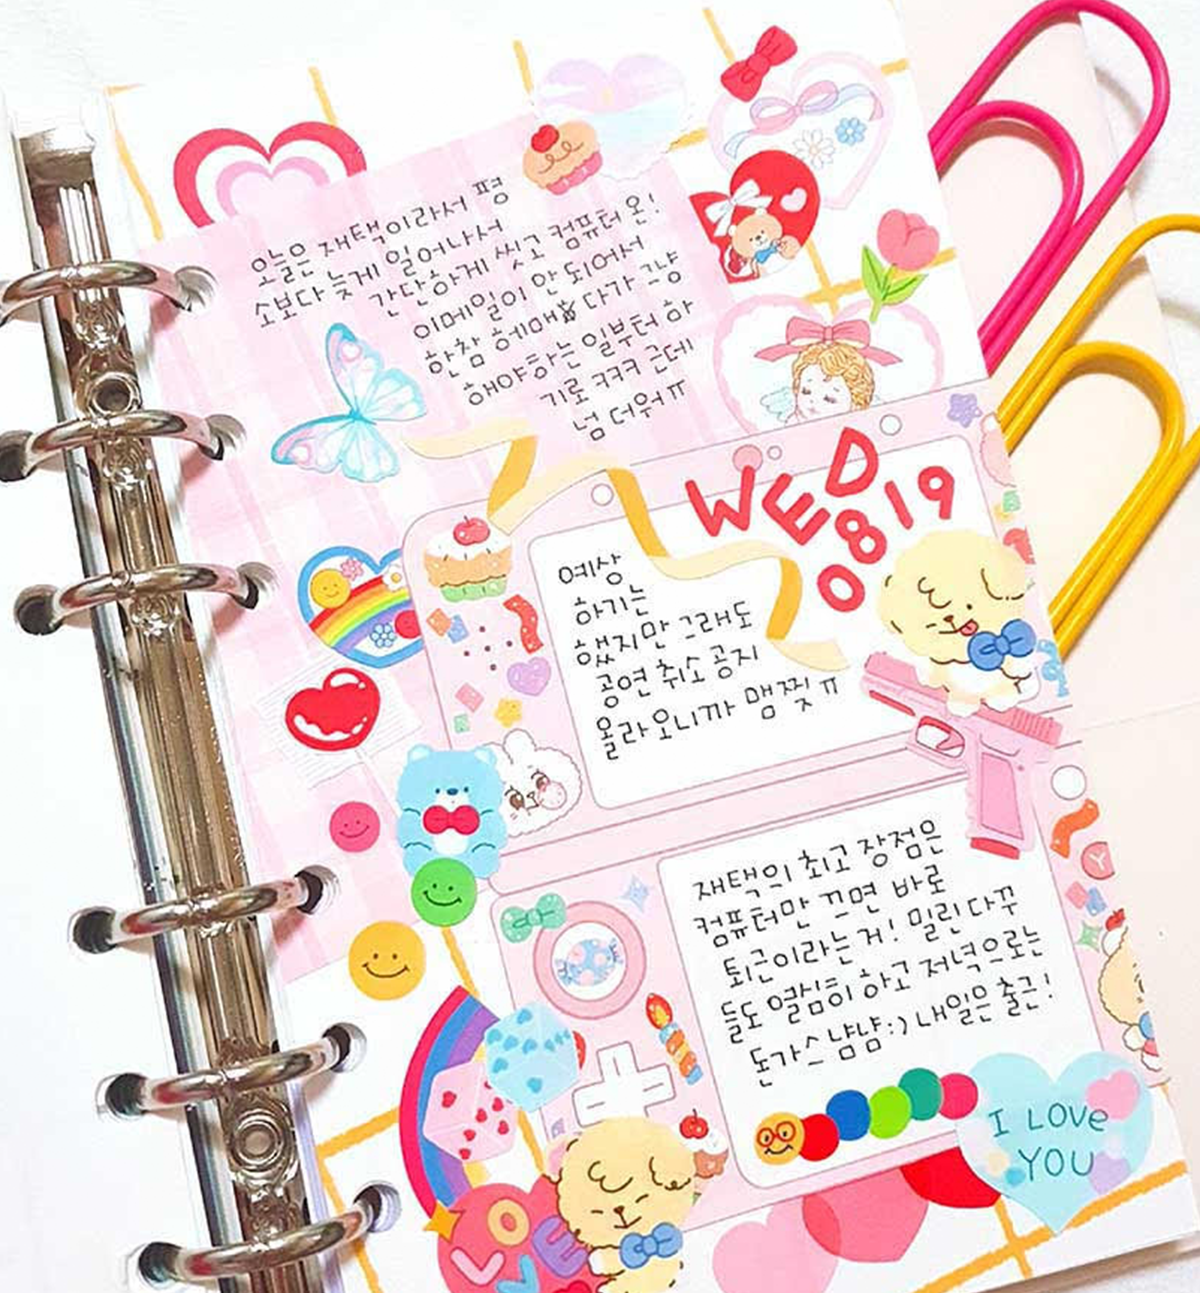 오늘은 재택이라서 평
소보다 늦게 일어나서
간단하게 씻고 컴퓨터 온!
이메일이 안 되어서
한참 헤매다가 그냥
해야하는 일부터 하
기로 ㅋㅋㅋ 근데
넘 더워ㅠ
WED
0819
예상
하기는
했지만 그래도
공연 취소 공지
올라오니까 맴찢ㅠ
재택의 최고 장점은
컴퓨터만 끄면 바로
퇴근이라는거! 밀린 다꾸
들도 열심히 하고 저녁으로는
돈가스 냠냠:) 내일은 출근!
I LOVe
YOU
LOVE